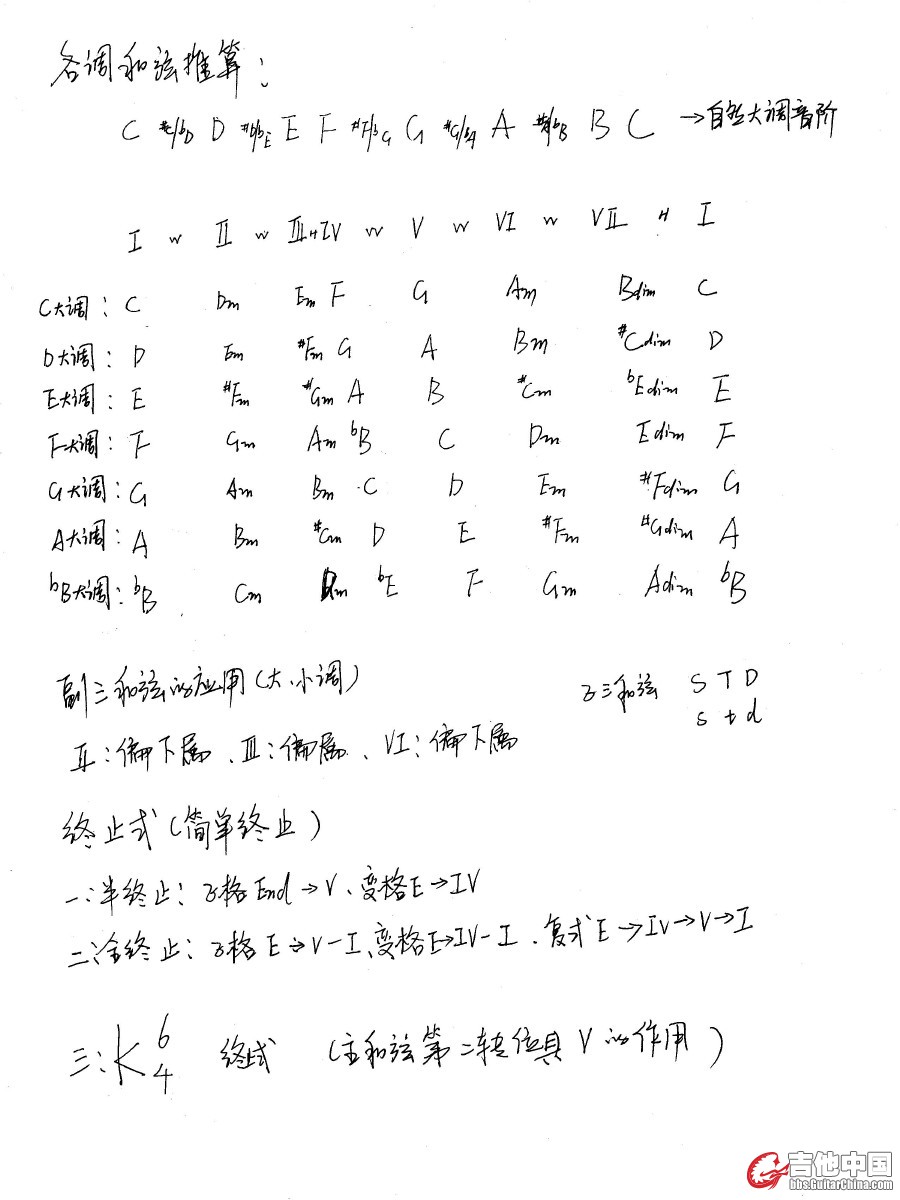 各调和弦推算:
C #C/bD D #D/bE E F #F/bG G #G/bA A #A/bB B C →自然大调音阶
I w II w III H IV w V w VI w VII H I
C大调: C Dm Em F G Am Bdim C
D大调: D Em #Fm G A Bm #Cdim D
E大调: E #Fm #Gm A B #Cm bEdim E
F大调: F Gm Am bB C Dm Edim F
G大调: G Am Bm C D Em #Fdim G
A大调: A Bm #Cm D E #Fm #Gdim A
bB大调: bB Cm Dm bE F Gm Adim bB
副三和弦的应用(大、小调)
正三和弦 S T D
s t d
II:偏下属、III:偏属、VI:偏下属
终止式(简单终止)
一:半终止:正格End→V、变格E→IV
二:全终止:正格E→V-I、变格E→IV-I、复式E→IV→V→I
三:K64 终止式 (主和弦第二转位具V的作用)
吉他中国
bbs.GuitarChina.com